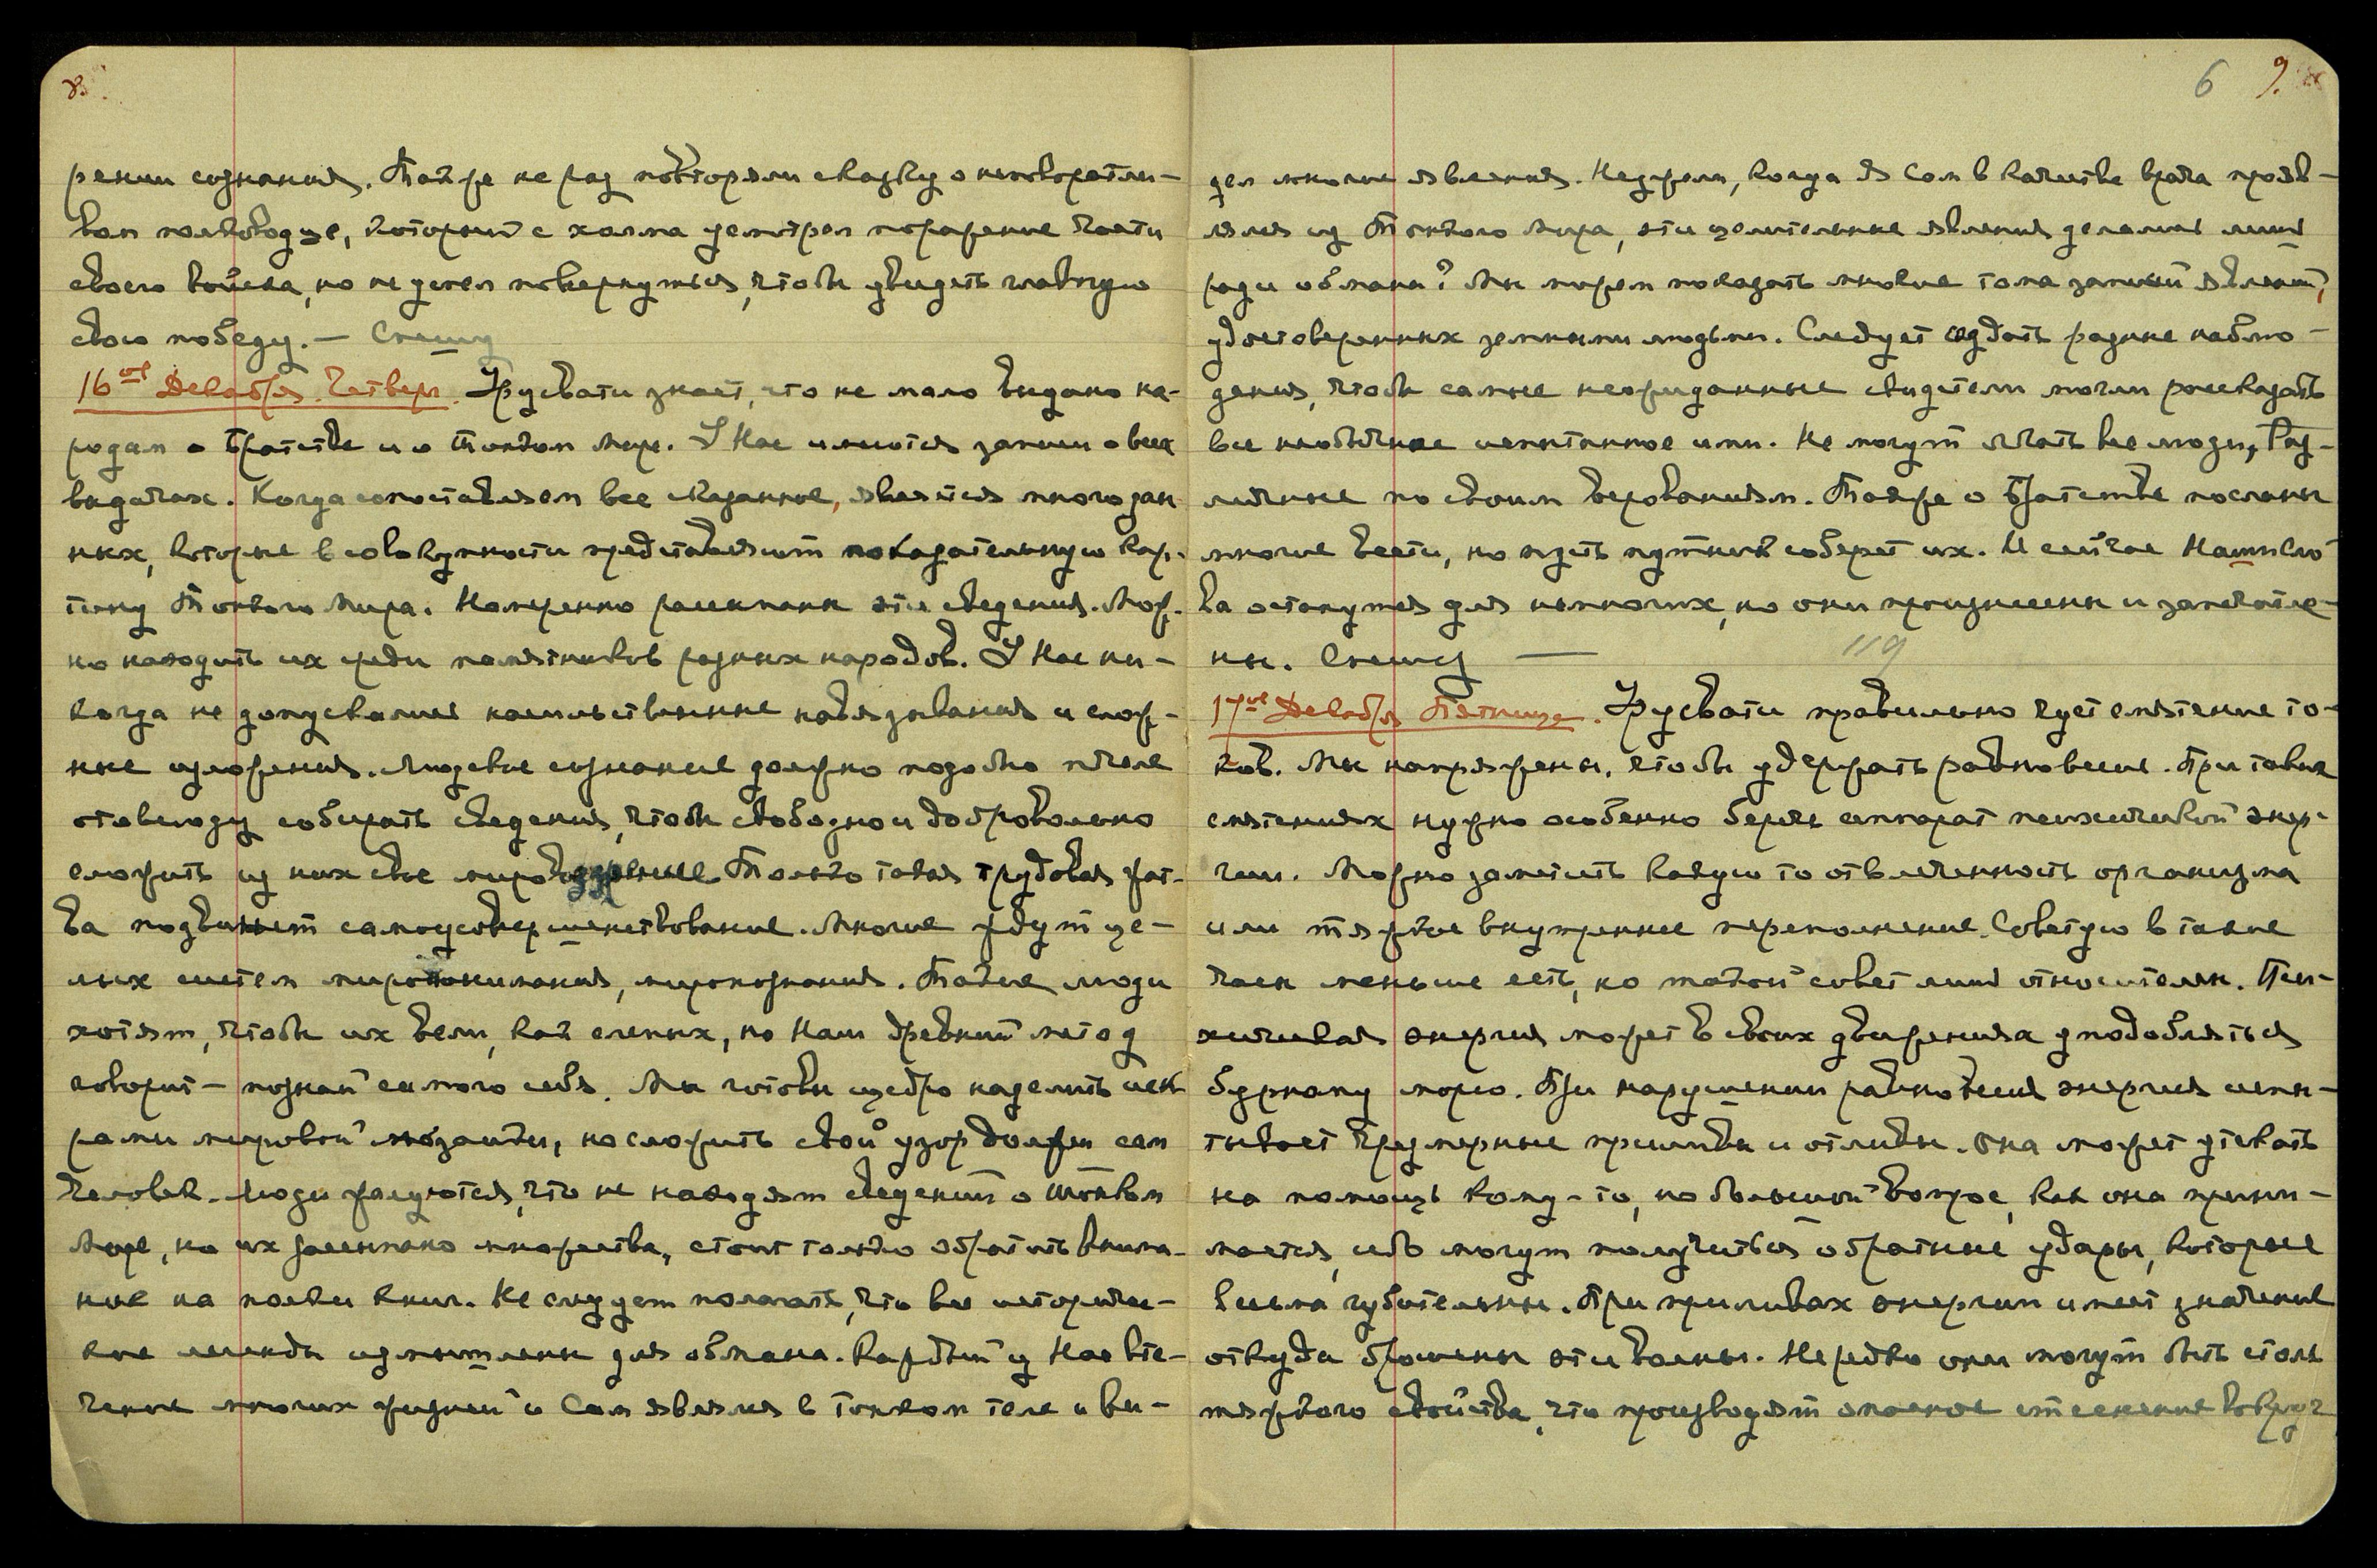 8.
рении сознания. Также не раз повторяли сказку о неповоротли-
вом полководце, который с холма усмотрел поражение части
своего войска, но не успел повернуться, чтобы увидеть главную
свою победу. — Спешу
16ое Декабря. Четверг. Урусвати знает, что не мало выдано на-
родам о Братстве и о Тонком Мире. У Нас имеются записи о всех
выдачах. Когда сопоставляем все сказанное, является много дан
ных, которые в совокупности представляют показательную кар-
тину Тонкого Мира. Намеренно рассыпаны эти сведения. Мож-
но находить их среди памятников разных народов. У Нас ни-
когда не допускались насильственные навязывания и слож-
ные изложения. Людское сознание должно подобно пчеле
отовсюду собирать сведения, чтобы свободно и добровольно
сложить из них свое мировоззрение. Только такая трудовая жат-
ва подвинет самоусовершенствование. Многие ждут це-
лых систем миропонимания, миропознания. Такие люди
хотят, чтобы их вели, как слепых, но Наш древний метод
говорит — познай самого себя. Мы готовы щедро наделить иск
рами мировой мозаики, но сложить свой узор должен сам
человек. Люди жалуются, что не находят сведений о тонком
Мире, но их рассыпано множества, стоит только обратить внима-
ние на полки книг. Не следует полагать, что все историчес-
кие легенды измышлены для обмана. Каждый из Нас в те-
чение многих жизней и Сам являлся в тонком теле и ви-
6 9.
дел многие явления. Неужели, когда Я Сам в качестве врача прояв-
лялся из Тонкого Мира, эти целительные явления делались лишь
ради обмана? Мы можем показать многие тома записей явлений,
удостоверенных земными людьми. Следует создать разные наблю-
дения, чтобы самые неожиданные свидетели могли рассказать
все необычное испытанное ими. Не могут лгать все люди, Раз-
личные по своим верованиям. Также о Братстве посланы
многие вести, но пусть путник соберет их. И сейчас Наши Сло-
ва останутся для немногих, но они произнесены и запечатле-
ны. Спешу — 119
17ое Декабря Пятница. Урусвати правильно чует смятение то-
ков. Мы напряжены, чтобы удержать равновесие. При таких
смятениях нужно особенно беречь аппарат психической энер-
гии. Можно заметить какую то отвлеченность организма
или тяжкое внутреннее переполнение. Советую в такие
часы меньше есть, но такой совет лишь относителен. Пси-
хическая энергия может в своих движениях уподобляться
бурному морю. При нарушении равновесия энергия испы-
тывает чрезмерные приливы и отливы. Она может утекать
на помощь кому-то, но большой вопрос, как она прини-
мается, ибо могут получиться обратные удары, которые
весьма губительны. При приливах энергии имеет значение
откуда брошены эти волны. Нередко они могут быть столь
тяжкого свойства, что производят опасное стеснение вокруг